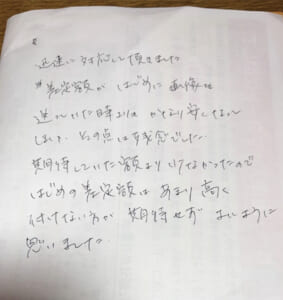 迅速に対応して頂きました
査定額が はじめに 画像を
送っていた時よりは かなり安くなって
しまい その点は残念でした。
期待していた額より いかなかったので
はじめの査定額は あまり高く
付けない方が 期待せず よいように
思いました。